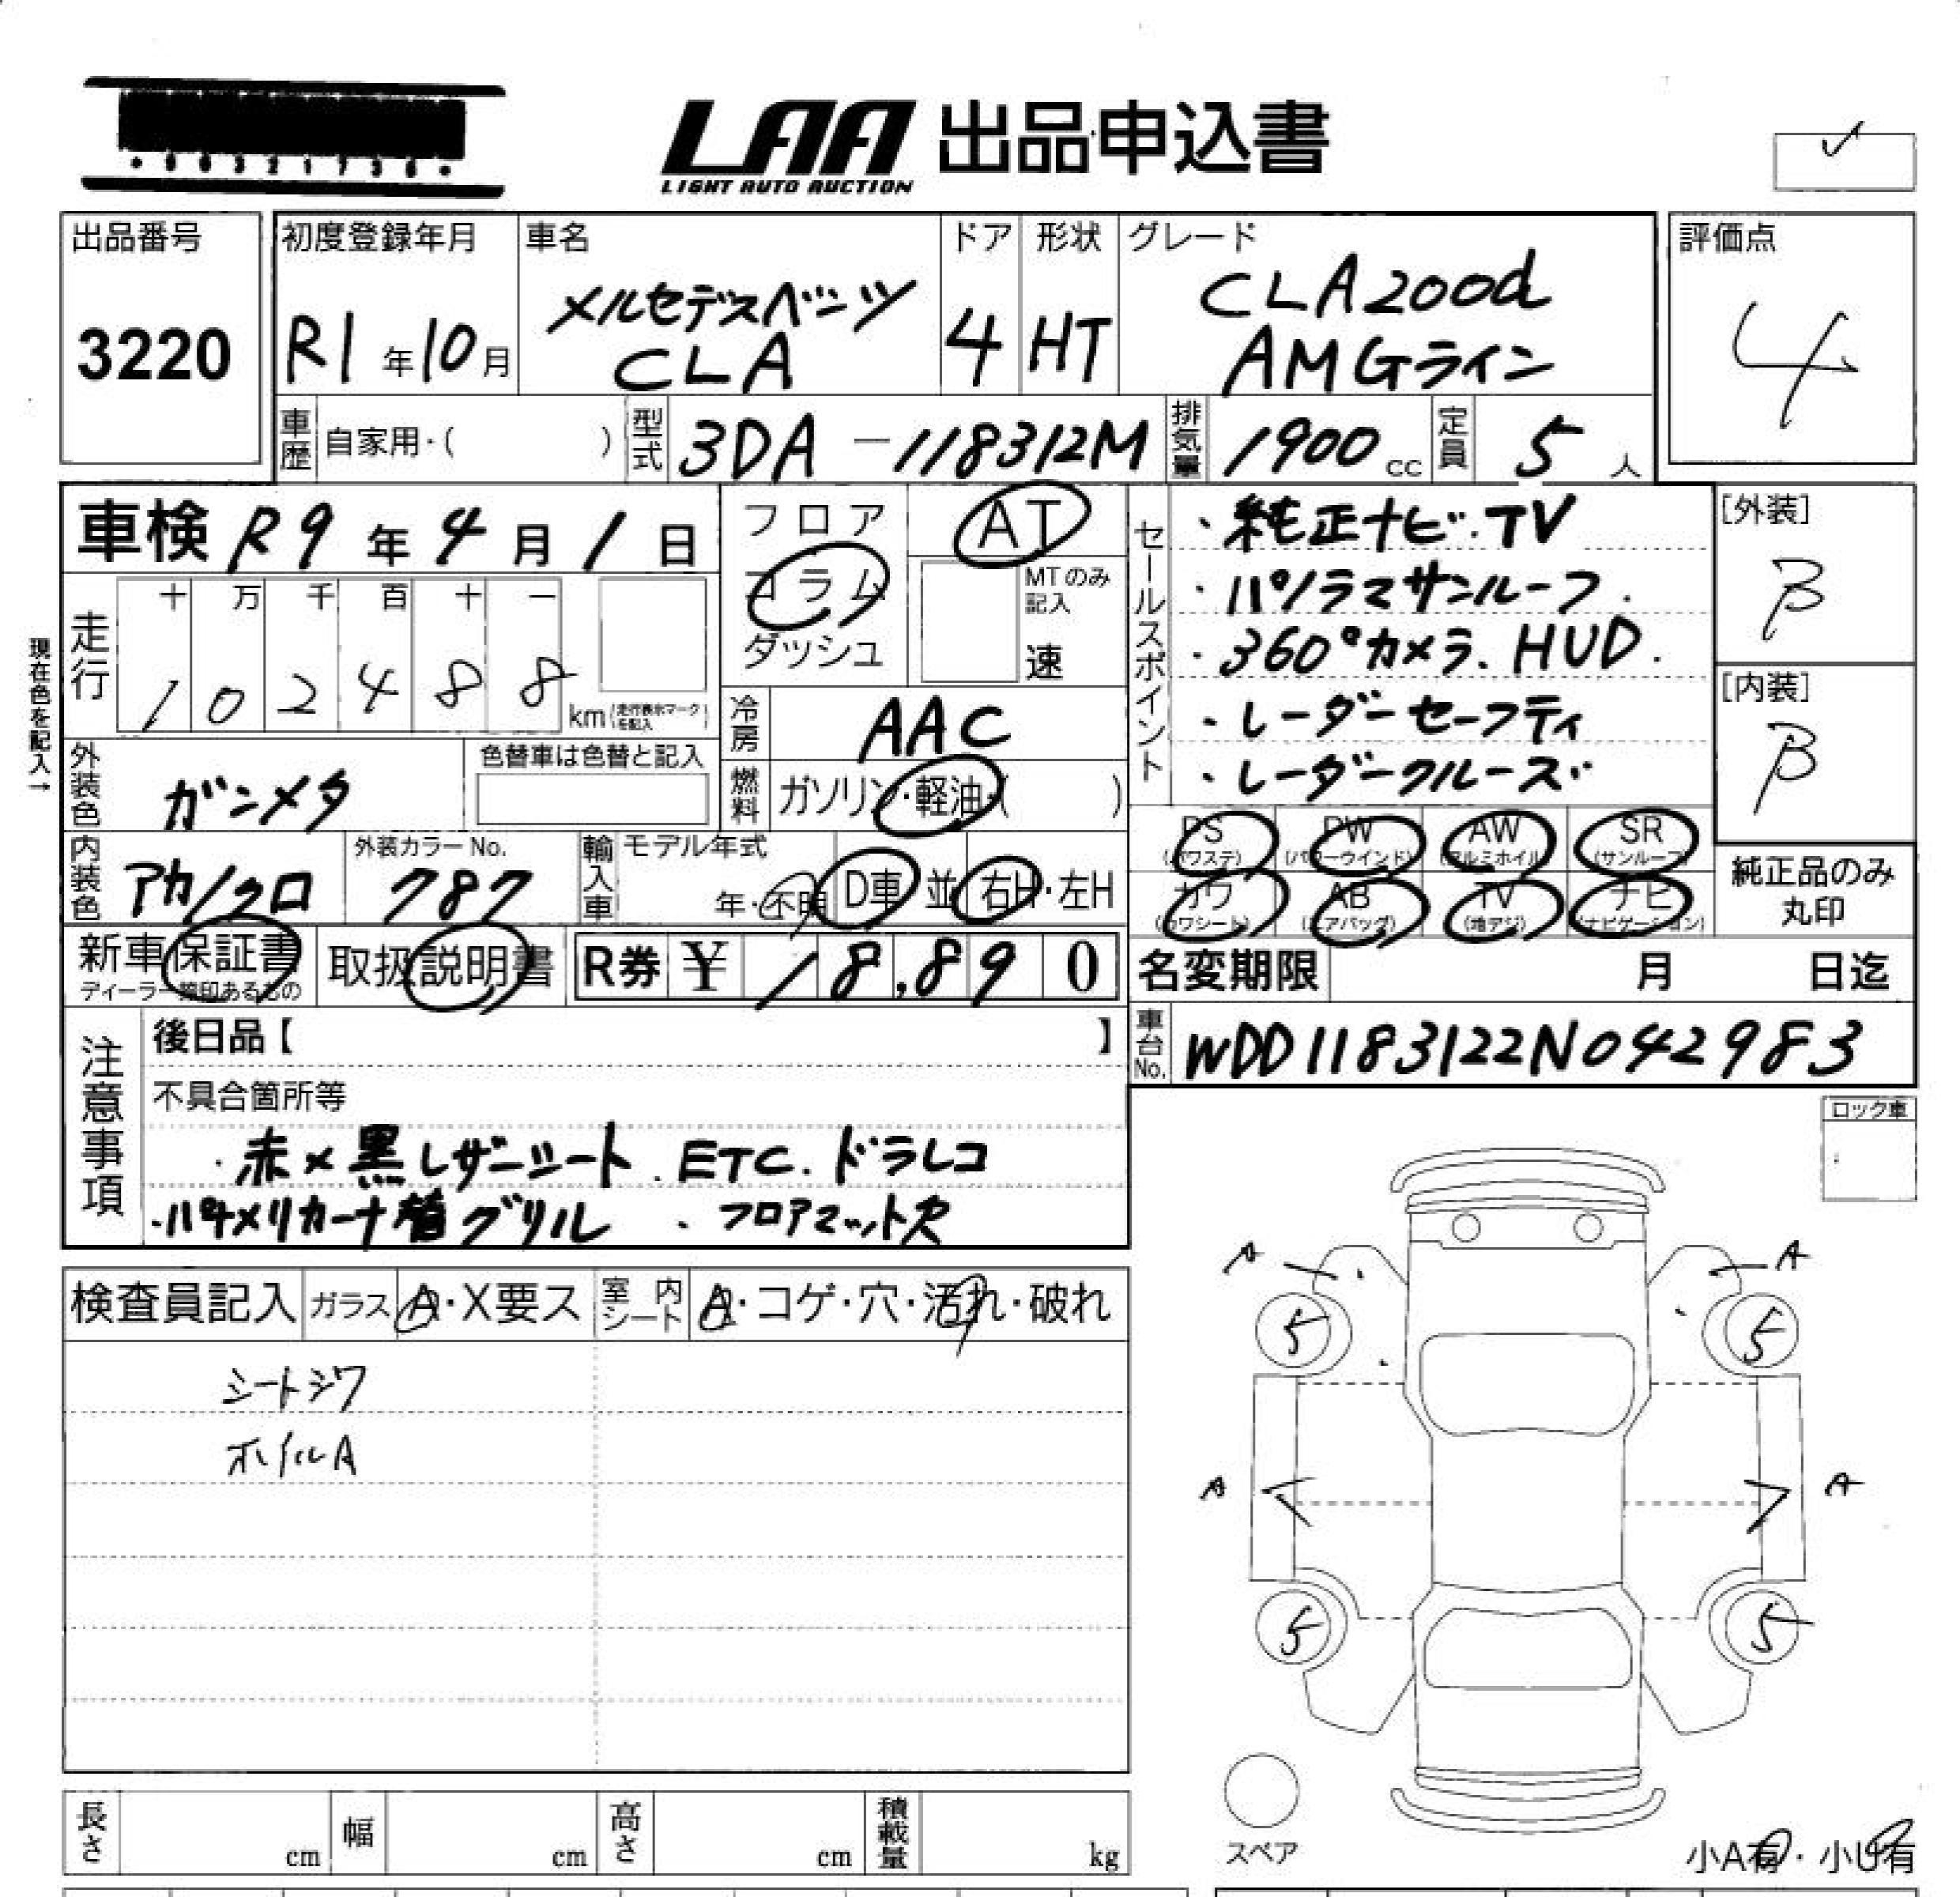 ・00321736・
LAA 出品申込書
LIGHT AUTO AUCTION
出品番号
3220
初度登録年月
R1年10月
車名
メルセデスベンツ
CLA
ドア
4
形状
HT
グレード
CLA200d
AMGライン
評価点
4
車歴 自家用・( )
型式 3DA-118312M
排気量 1900cc
定員 5人
車検 R9年4月1日
フロア
コラム
ダッシュ
AT
MTのみ
記入
速
現在色を記入→
走行
十 万 千 百 十 一
1 0 2 4 8 8 km(走行表示マークを記入)
冷房 AAC
燃料 ガソリン・軽油・( )
外装色 ガンメタ
色替車は色替と記入
内装色 アカ/クロ
外装カラーNo.
787
輸入車 モデル年式
年・不明
D車 並 右H・左H
セールスポイント
・純正ナビ・TV
・パノラマサンルーフ.
・360°カメラ、HUD.
・レーダーセーフティ
・レーダークルーズ
[外装]
B
[内装]
B
PS (パワステ) PW (パワーウインド) AW (アルミホイル) SR (サンルーフ)
カワ (カワシート) AB (エアバッグ) TV (地デジ) ナビ (ナビゲーション)
純正品のみ
丸印
新車保証書
ディーラー捺印あるもの
取扱説明書
R券 ¥ 18,890
名変期限 月 日迄
車台No. WDD1183122N042983
注意事項
後日品【 】
不具合箇所等
・赤×黒レザーシート. ETC. ドラレコ
・パナメリカーナ着グリル ・フロアマット欠
ロック車
検査員記入 ガラス A・X要ス 室内シート A・コゲ・穴・汚れ・破れ
シートシワ
ホイルA
A A
5 5
A A
5 5
スペア
小A有・小U有
長さ cm 幅 cm 高さ cm 積載量 kg